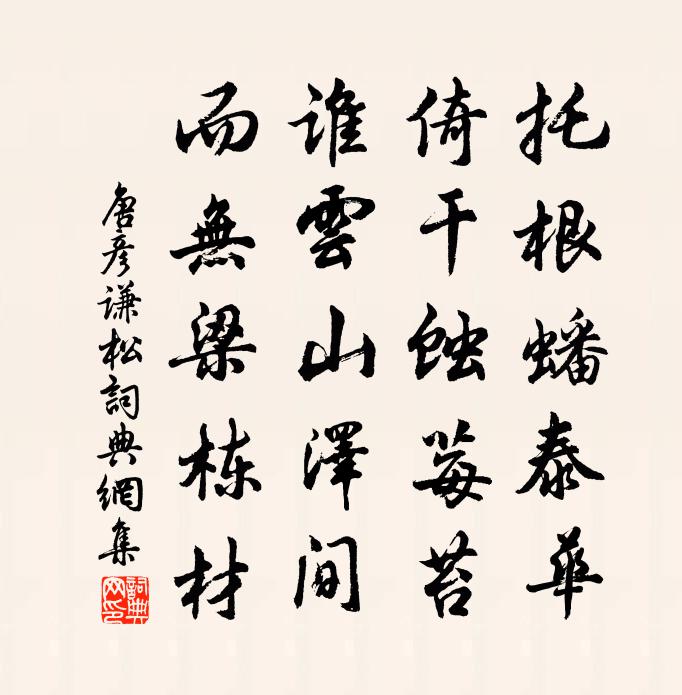 托根蟠泰華
倚干蝕莓苔
誰雲山澤間
而無梁栋材
唐彦谦松詞典網集
詞典網印